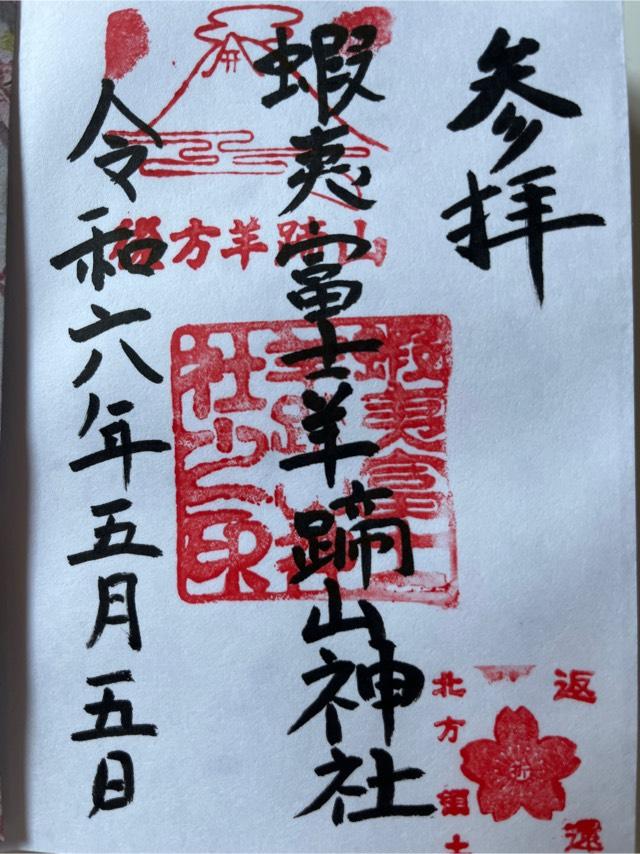 参拝
蝦夷富士羊蹄山神社
令和六年五月五日
後方羊蹄山
蝦夷富士
羊蹄山神
社之印
返還
祈
北方領土